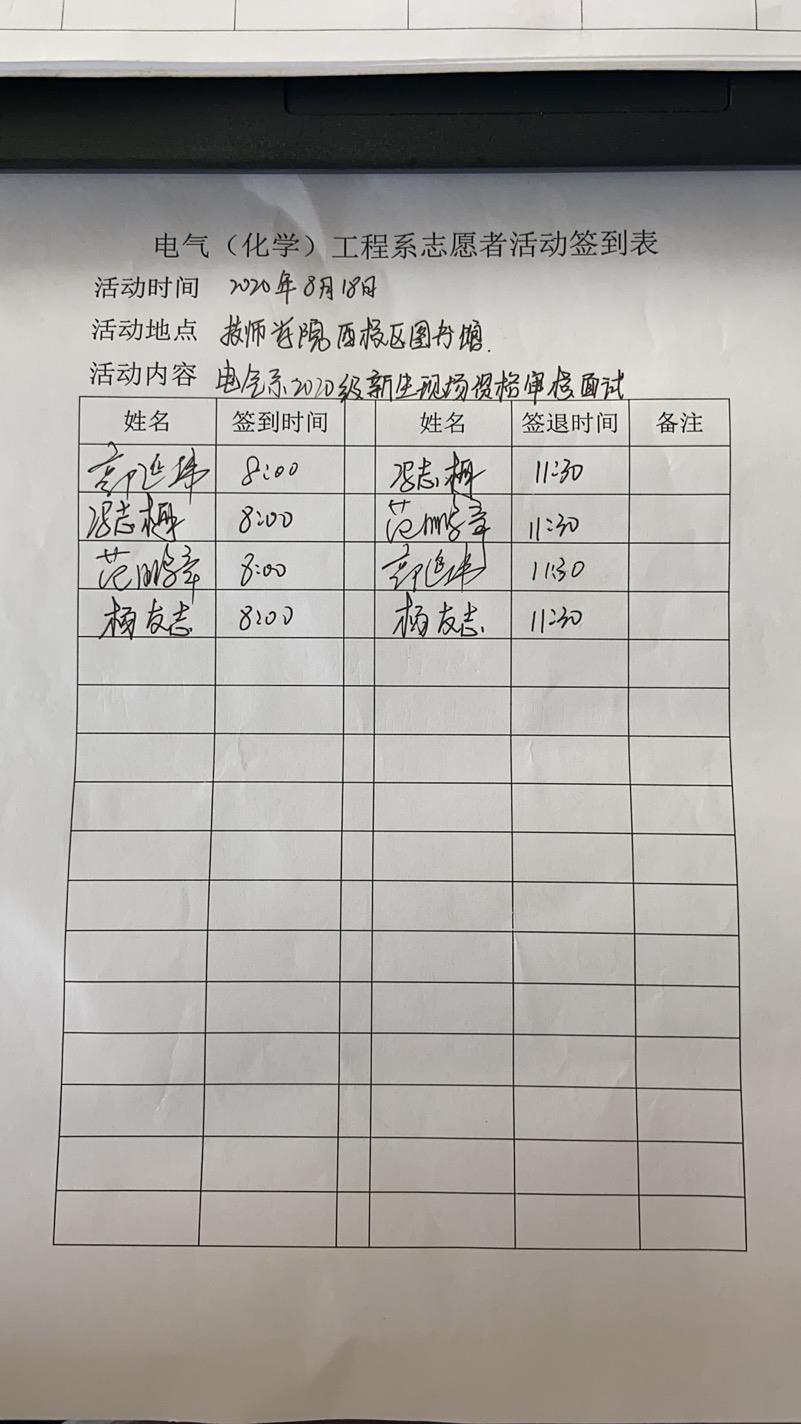 电气（化学）工程系志愿者活动签到表
活动时间 2020年8月18日
活动地点 技师学院西校区图书馆.
活动内容 电气系2020级新生现场资格审核面试
姓名 签到时间 姓名 签退时间 备注
8:00 冯志 11:30
冯志 8:00 范鹏章 11:30
范鹏章 8:00 11:30
杨友志 8:00 杨友志 11:30